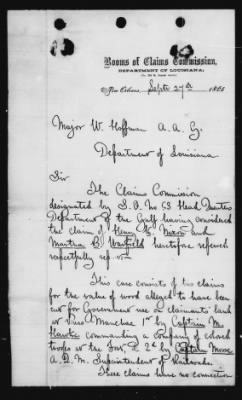 Rooms of Claims Commission,
DEPARTMENT OF LOUISIANA,
New Orleans Septr 27th 1865
Major W. Hoffman A. A. G.
Department of Louisiana
Sir
The Claims Commission
designated by S.O. No 63 Head Quarters
Department of the Gulf having considered
the claim of Henry Nixon and
Martha B. Warfield heretofore referred
respectfully
This case consists of two claims
for the value of wood alleged to have been
cut for Government use on claimants land
at Pass Manchac 1st by Captain M.
Hawke commanding a company of colored
troops at the , & 2d by Captain Morse
A. Q. M. Superintendent of Railroads.
These claims have no connection